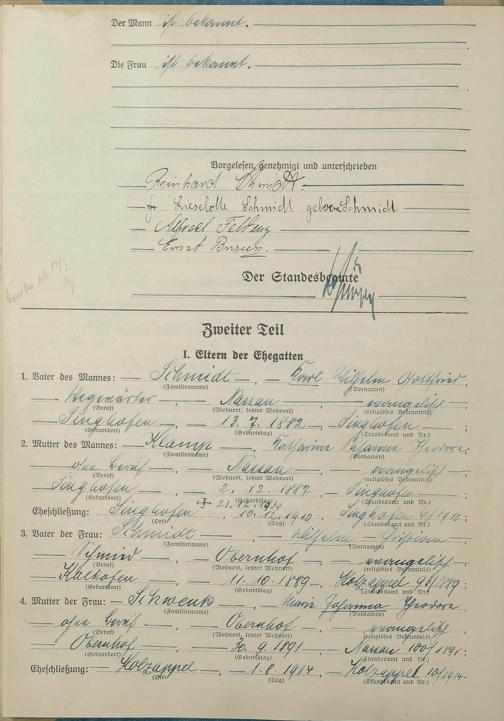 Der Mann ist bekannt.
Die Frau ist bekannt.
Vorgelesen, genehmigt und unterschrieben
Reinhard Schmidt.
Lieselotte Schmidt geborene Schmidt
Alfred
Ernst
Der Standesbeamte
Zweiter Teil
I. Eltern der Ehegatten
1. Vater des Mannes: Schmidt, Karl Wilhelm
(Familienname) (Vornamen)
Wegewärter, Nassau, evangelisch
(Beruf) (Wohnort, letzter Wohnort) (religiöses Bekenntnis)
Singhofen, 13. 7. 1882, Singhofen
(Geburtsort) (Geburtstag) (Standesamt und Nr.)
2. Mutter des Mannes: Katharina Johanna
(Familienname) (Vornamen)
ohne Beruf, Nassau, evangelisch
(Beruf) (Wohnort, letzter Wohnort) (religiöses Bekenntnis)
Singhofen, 2. 12. 1887, Singhofen
(Geburtsort) (Geburtstag) (Standesamt und Nr.)
Eheschließung: Singhofen, 10. 12. 1910, Singhofen
(Ort) (Tag) (Standesamt und Nr.)
3. Vater der Frau: Schmidt, Wilhelm
(Familienname) (Vornamen)
Schmied, Obernhof, evangelisch
(Beruf) (Wohnort, letzter Wohnort) (religiöses Bekenntnis)
Kalkofen, 11. 10. 1889, Holzappel
(Geburtsort) (Geburtstag) (Standesamt und Nr.)
4. Mutter der Frau: Schwenk, Marie Johanna
(Familienname) (Vornamen)
ohne Beruf, Obernhof, evangelisch
(Beruf) (Wohnort, letzter Wohnort) (religiöses Bekenntnis)
Obernhof, 20. 9. 1891, Nassau 100/1891
(Geburtsort) (Geburtstag) (Standesamt und Nr.)
Eheschließung: Holzappel, 1. 8. 1914, Holzappel 10/1914
(Ort) (Tag) (Standesamt und Nr.)